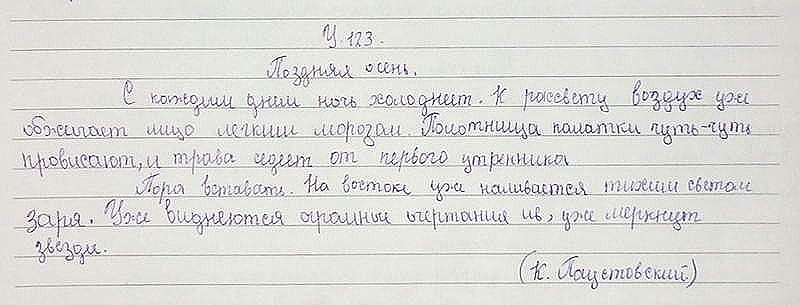 У. 123.
Поздняя осень.
С каждым днём ночь холоднеет. К рассвету воздух уже
обжигает лицо легким морозом. Полотнища палатки чуть-чуть
провисают, и трава седеет от первого утренника
Пора вставать. На востоке уже наливается тихим светом
заря. Уже виднеются огромные очертания ив, уже меркнут
звезды.
(К. Паустовский)